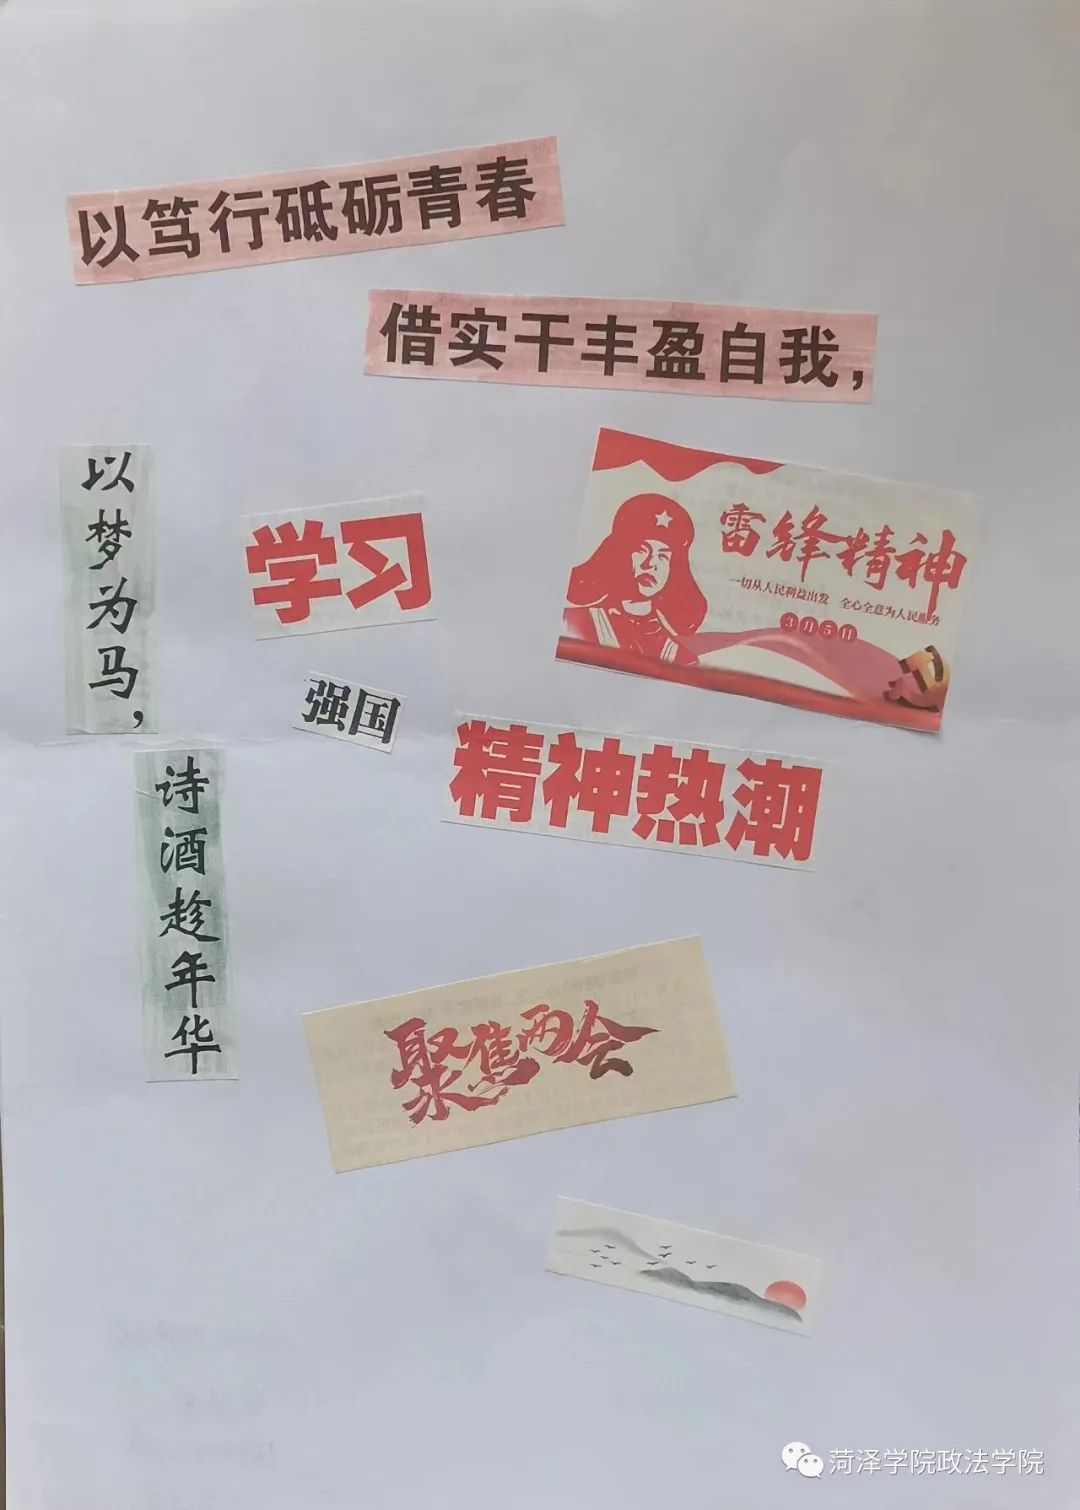 以笃行砥砺青春
借实干丰盈自我，
以梦为马，
诗酒趁年华
学习
强国
雷锋精神
一切从人民利益出发 全心全意为人民服务
3月5日
精神热潮
聚焦两会
菏泽学院政法学院